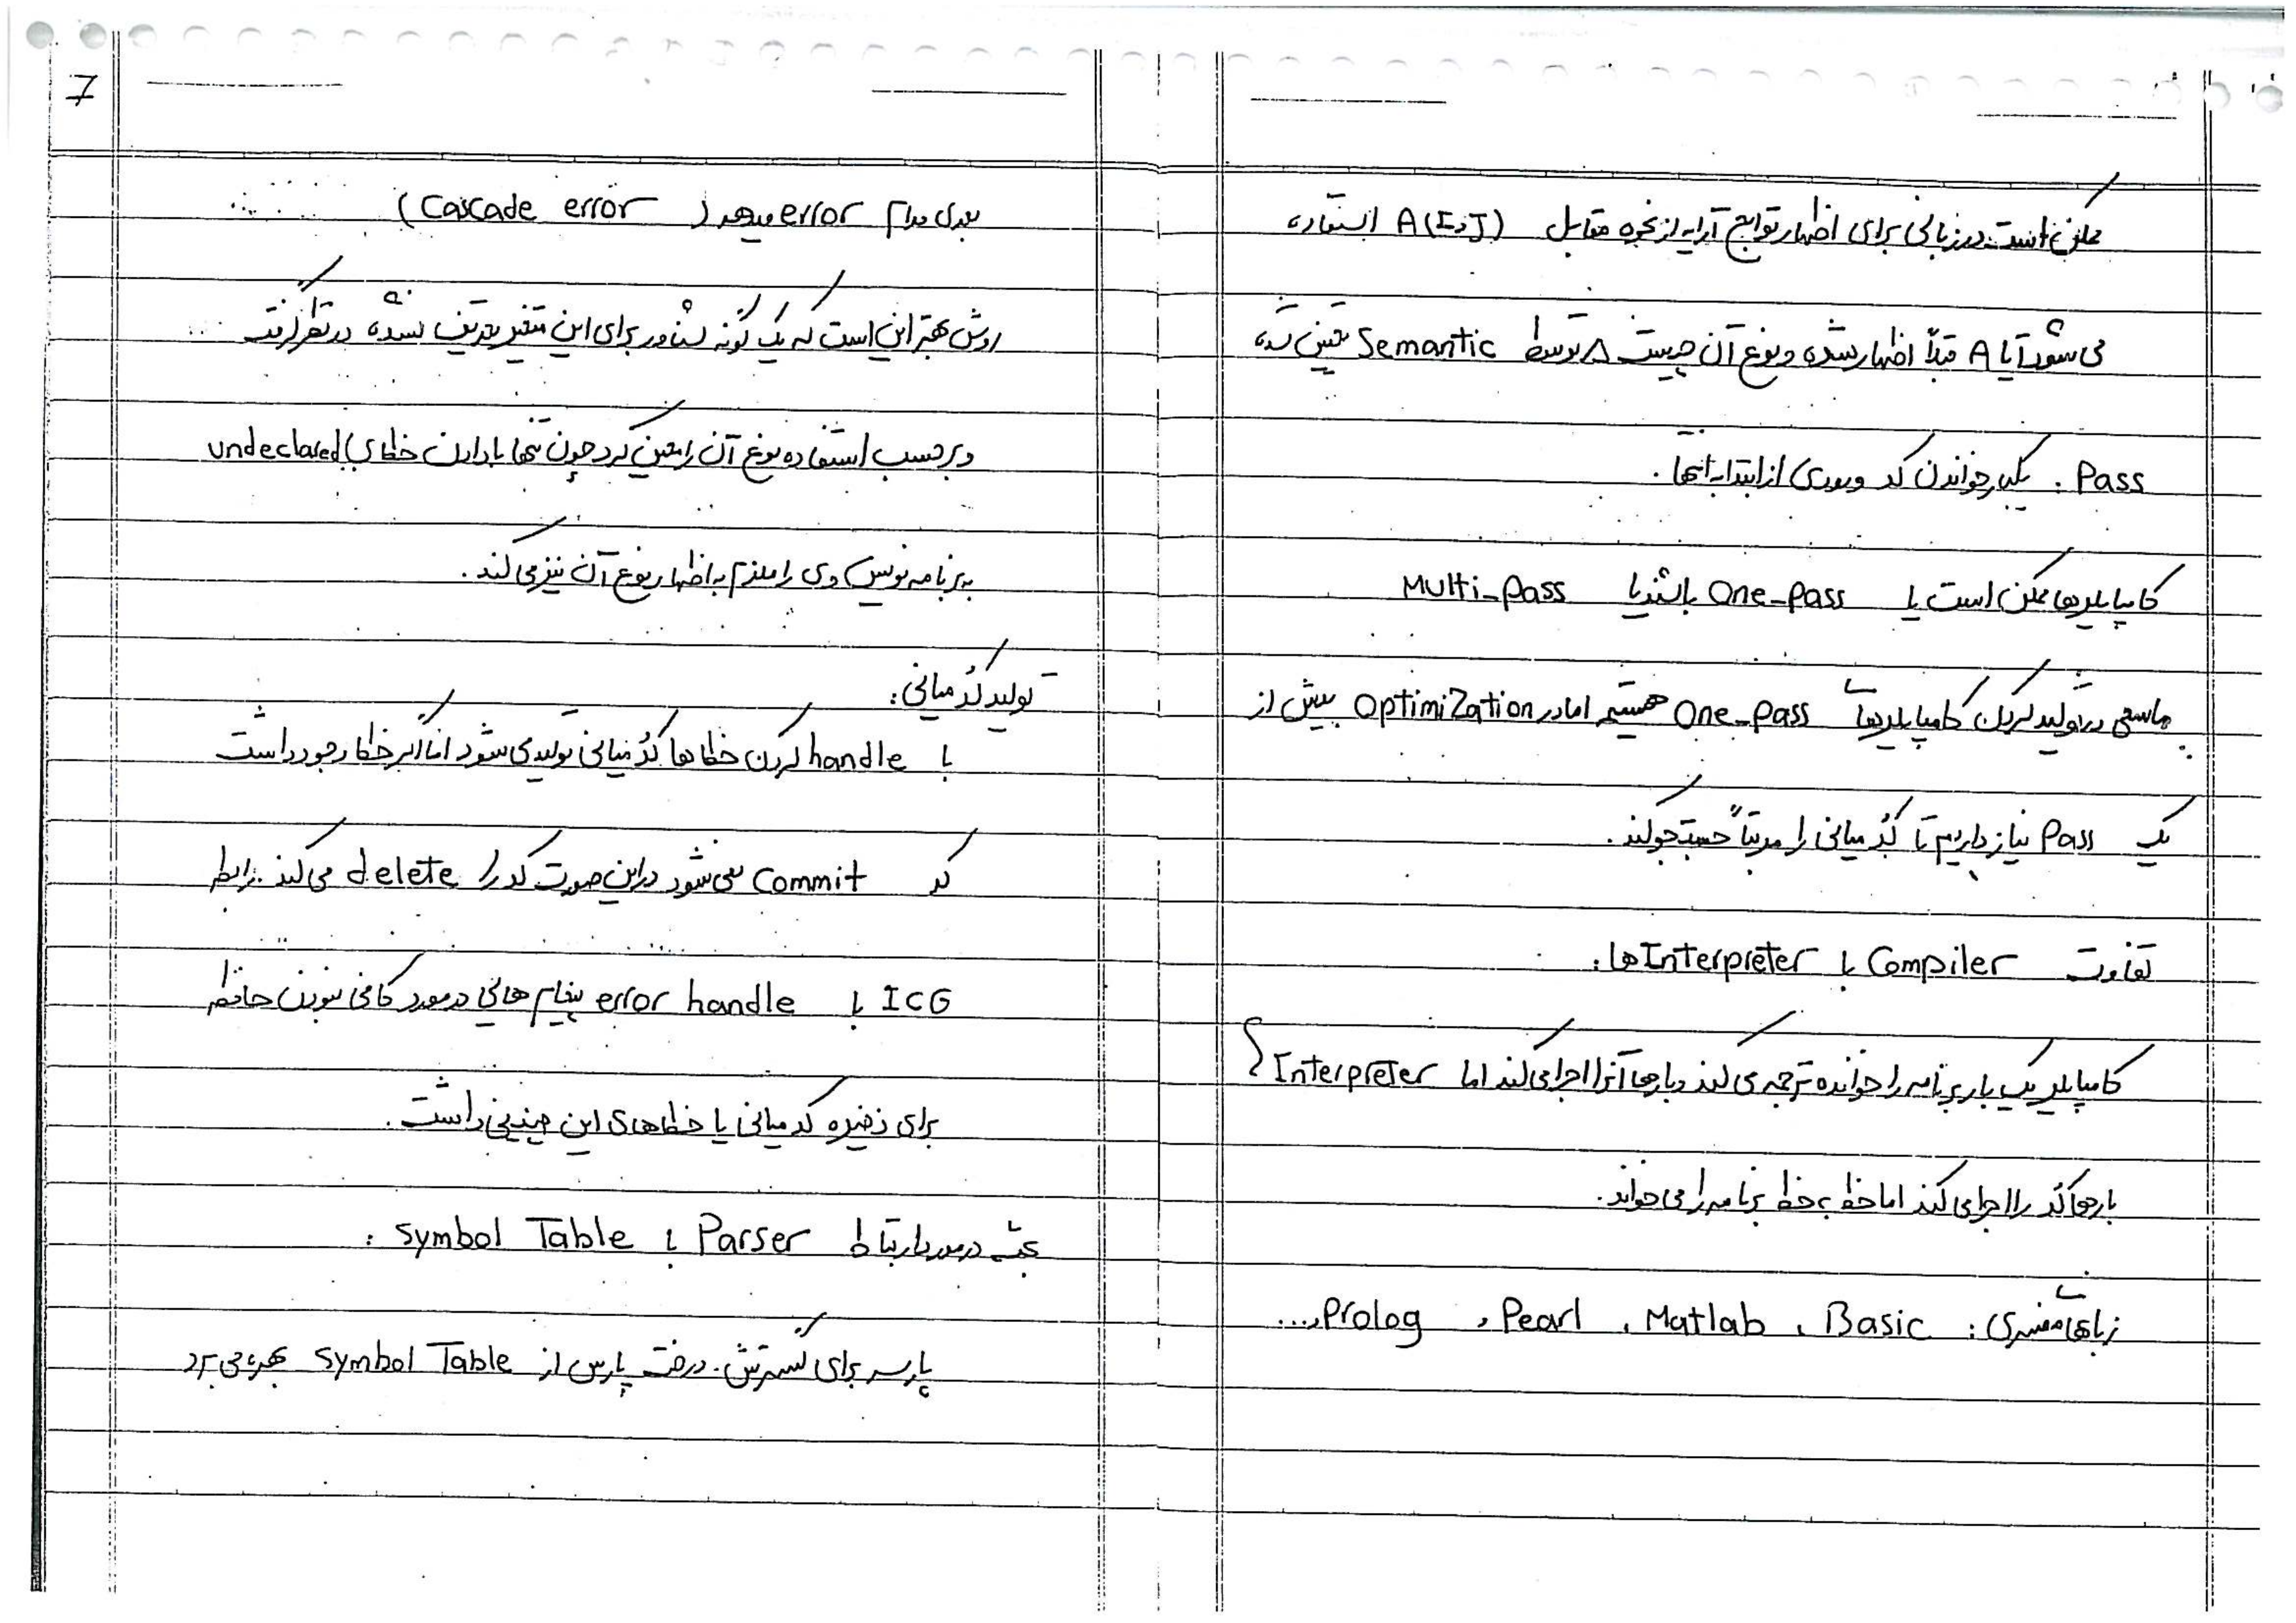 ممکن است در زبانی برای اظهار توابع آرایه از نحوه مقابل A(I,J) استفاده
می شود آیا A قبلاً اظهار شده و نوع آن چیست؟ توسط Semantic تعیین شده
Pass : یکبار خواندن کد ورودی از ابتدا به انتها .
کامپایلرها ممکن است یا One-Pass باشند یا Multi-Pass
ما سعی در تولید کردن کامپایلرهای One-Pass هستیم اما در Optimization بیش از
یک Pass نیاز داریم تا کُد میانی را مرتباً جستجو کند .
تفاوت Compiler با Interpreter ها :
کامپایلر یک بار برنامه را خوانده ترجمه می کند و بارها آنرا اجرا می کند اما Interpreter
بارها کُد را اجرا می کند اما خط به خط برنامه را می خواند .
زبانهای مفسری : Basic ، Matlab ، Pearl ، Prolog ،...
7
بعدی مدام error میدهد ( Cascade error )
روش بهتر این است که یک گونه شناور برای این متغیر تعریف نشده در نظر گرفت
و برحسب استفاده نوع آن را تعیین کرد چون تنها با دادن خطای undeclared
به برنامه نویس وی را ملزم به اظهار نوع آن نیز می کند .
تولید کُد میانی :
با handle کردن خطا ها کُد میانی تولید می شود اما اگر خطا وجود داشت
کد Commit نمی شود در این صورت کد را delete می کند . رابط
ICG با error handle پیغام هائی در مورد کافی نبودن حافظه
برای ذخیره کد میانی یا خطاهای این چنینی داشت .
بحث در مورد ارتباط Parser با Symbol Table :
پارسر برای گسترش درخت پارس از Symbol Table بهره می برد